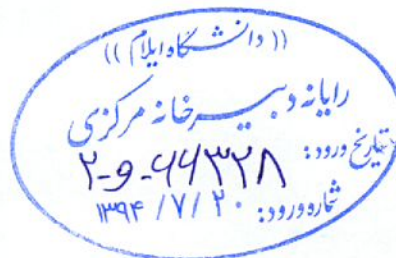 (( دانشگاه ایلام ))
رایانه دبیرخانه مرکزی
تاریخ ورود:
۲-۹-۶۶۳۲۸
شماره ورود: ۱۳۹۴/۷/۲۰